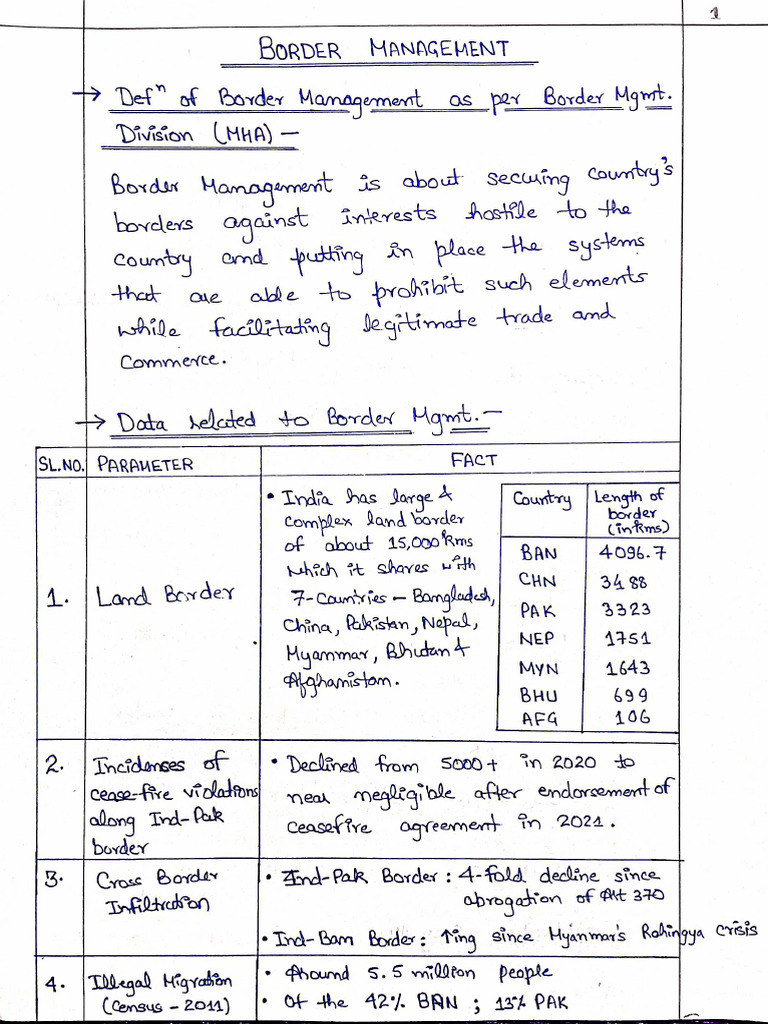 1
BORDER MANAGEMENT
→ Defⁿ of Border Management as per Border Mgmt.
Division (MHA) –
Border Management is about securing country's
borders against interests hostile to the
country and putting in place the systems
that are able to prohibit such elements
while facilitating legitimate trade and
commerce.
→ Data related to Border Mgmt. –
SL.NO. PARAMETER FACT
1. Land Border
• India has large &
complex land border
of about 15,000 kms
which it shares with
7-Countries – Bangladesh,
China, Pakistan, Nepal,
Myanmar, Bhutan &
Afghanistan.
Country Length of
border
(in kms)
BAN 4096.7
CHN 3488
PAK 3323
NEP 1751
MYN 1643
BHU 699
AFG 106
2. Incidenses of
cease-fire violations
along Ind-Pak
border
• Declined from 5000+ in 2020 to
near negligible after endorsement of
ceasefire agreement in 2021.
3. Cross Border
Infiltration
• Ind-Pak Border : 4-fold decline since
abrogation of Art 370
• Ind-Ban Border : ↑ing since Myanmar's Rohingya crisis
4. Illegal Migration
(Census – 2011)
• Around 5.5 million people
• Of the 42% BAN ; 13% PAK